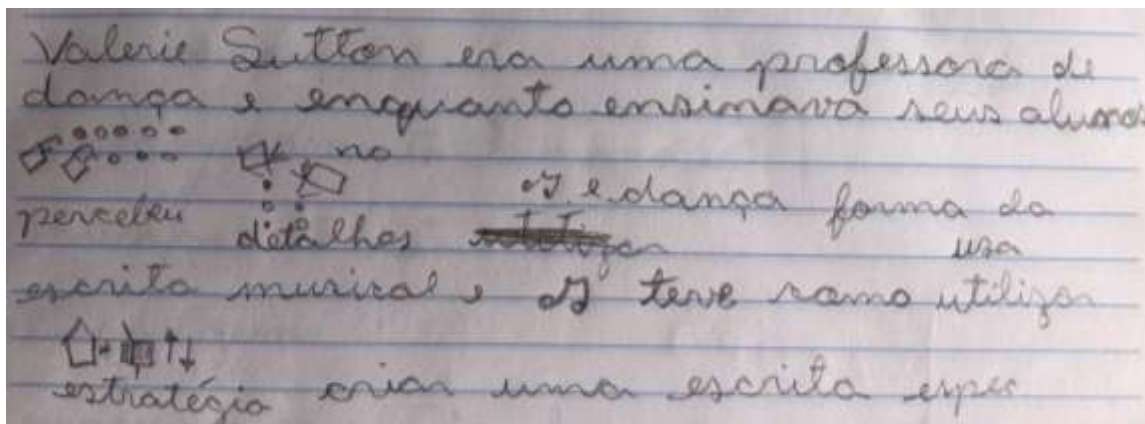 Valerie Sutton era uma professora de
dança e enquanto ensinava seus alunos
no
e dança forma da
percebeu detalhes usa
escrita musical, teve como utilizar
estratégia criar uma escrita espec